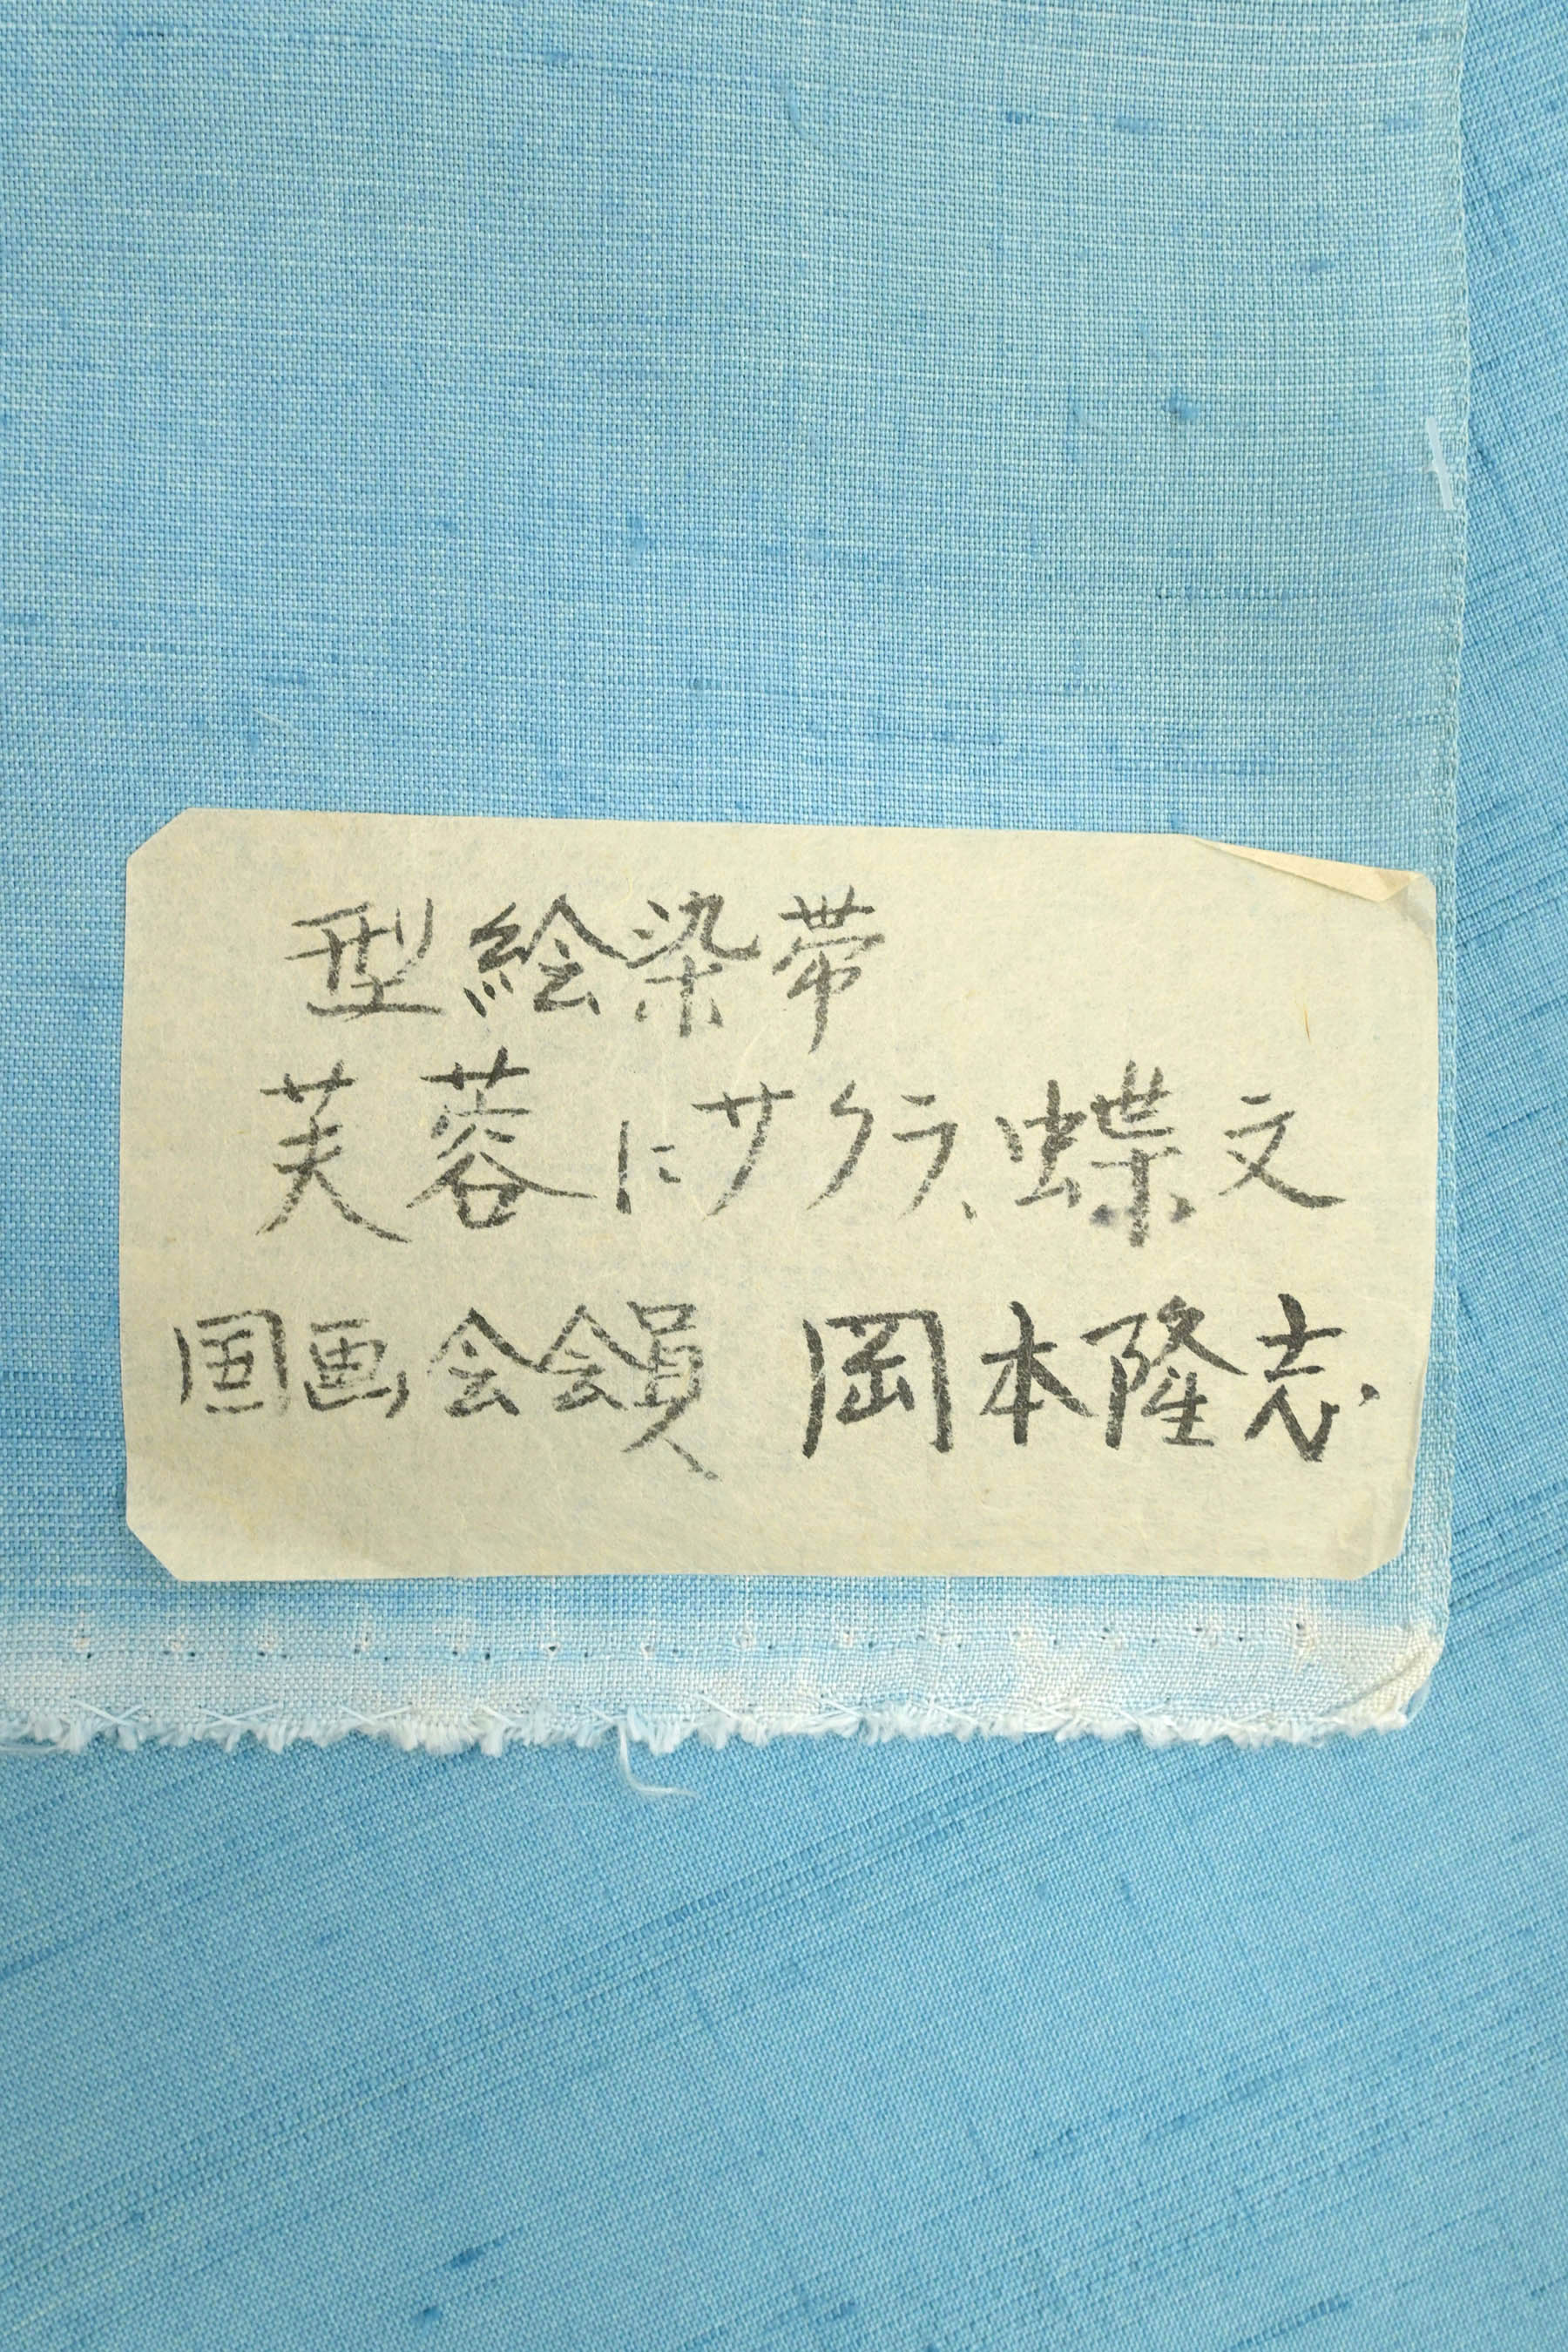 型絵染帯
芙蓉にサクラ、蝶文
国画会会員 岡本隆志